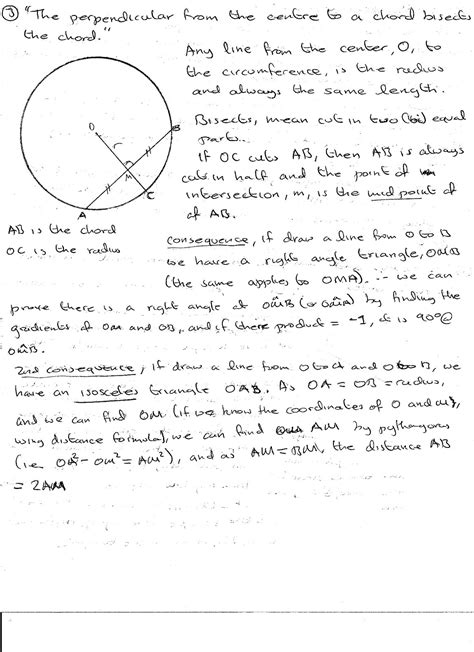 ③ "The perpendicular from the centre to a chord bisects
the chord."
Any line from the center, O, to
the circumference, is the radius
and always the same length.
Bisects, mean cut in two (bi) equal
parts..
If OC cuts AB, then AB is always
cut in half and the point of
intersection, M, is the mid point of
of AB.
O
B
M
C
A
AB is the chord
OC is the radius
Consequence, if draw a line from O to B
we have a right angle triangle, OMB
(the same applies to OMA). ∴ we can
prove there is a right angle at OM̂B (or OM̂A) by finding the
gradients of OM and OB, and if there product = -1, it is 90@
OM̂B.
2nd consequence, if draw a line from O to A and O to B, we
have an isosceles triangle OAB. As OA = OB = radius,
and we can find OM (if we know the coordinates of O and M),
using distance formula, we can find AM by pythagoras
(ie OA² - OM² = AM²), and as AM = BM, the distance AB
= 2AM